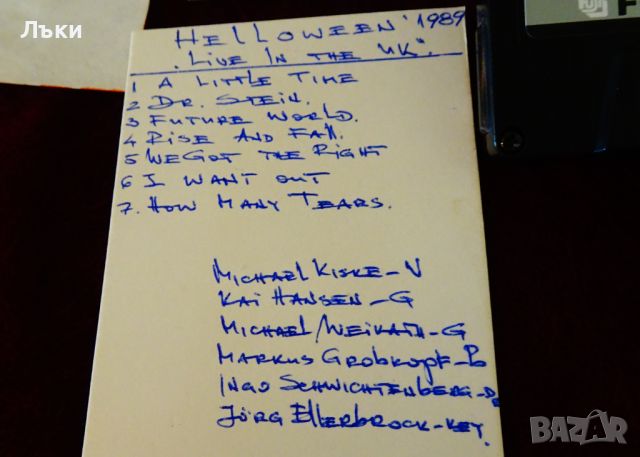 Лъки
FUJI
F
Helloween' 1989
"Live In the UK".
1 A Little Time
2 Dr. Stein.
3 Future World.
4 Rise And Fall.
5 We Got the Right
6 I want out
7. How Many Tears.
Michael Kiske-V
Kai Hansen-G
Michael Weikath-G
Markus Grobkopf-B
Ingo Schwichtenberg-Dr
Jörg Ellerbrock-Key.
BAZAR